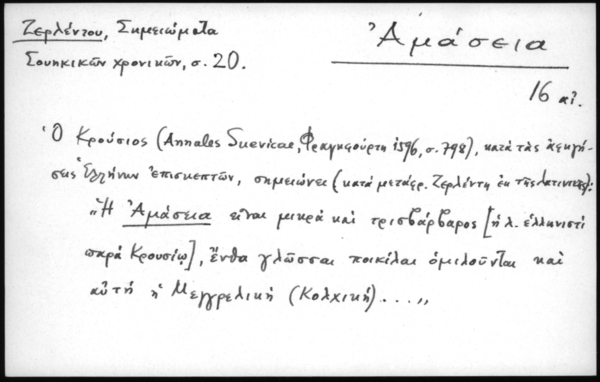 Ζερλέντου, Σημειώματα
Σουηκικῶν χρονικῶν, σ. 20.
Ἀμάσεια
16 αἰ.
Ὁ Κρούσιος (Annales Suevicae, Φραγκφούρτη 1596, σ. 798), κατὰ τὰς ἀφηγή-
σεις Ἑλλήνων ἐπισκεπτῶν, σημειώνει (κατὰ μετάφρ. Ζερλέντη ἐκ τῆς λατινικῆς):
"Ἡ Ἀμάσεια εἶναι μικρὰ καὶ τρισβάρβαρος [ἡ λ. ἑλληνιστὶ
παρὰ Κρουσίῳ], ἔνθα γλῶσσαι ποικίλαι ὁμιλοῦνται καὶ
αὐτὴ ἡ Μεγγρελικὴ (Κολχική)....„